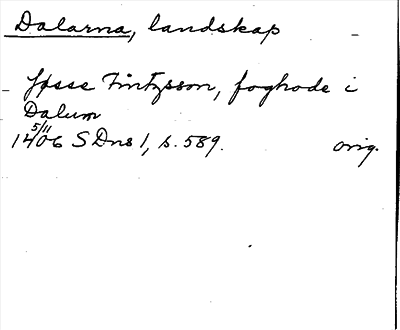 Dalarna, landskap
Jösse Fintzsson, foghode i
Dalum
5/11
1406 SDns 1, s. 589. orig.